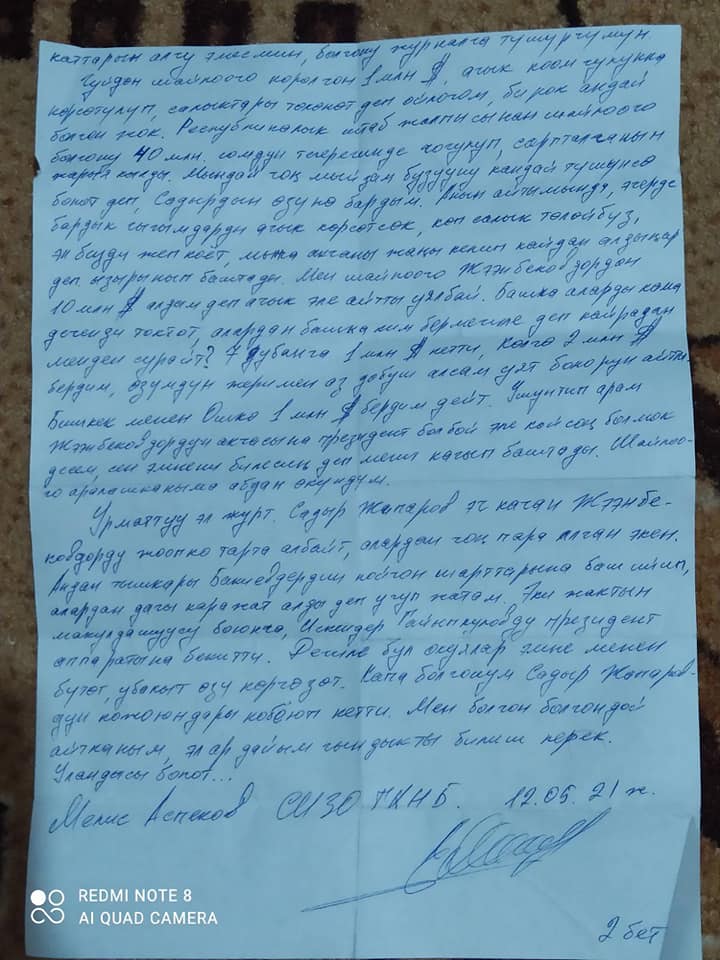 каттарын алгу эмесмин, болгону журналга түшүргүмүн.
Чүйдөн шайлоого королгон 1 млн $, ачык коомчулукка
көрсөтүлүп, салыктары төлөнөт деп ойлогом, бирок андай
болгон жок. Республикалык штаб жалпысынан шайлоого
болгону 40 млн. сомдун тегерегинде чогулуп, сарпталганын
жарыя кылды. Мындай чоң мыйзам бузууну кандай түшүнсө
болот деп, Садырдын өзүнө бардым. Анын айтымында, эгерде
бардык чыгымдарды ачык көрсөтсөк, көп салык төлөйбүз,
эл бизди жеп коёт, мынча акчаны жаңы келип кайдан алдыңар
деп ызырынып баштады. Мен шайлоого Жээнбековдордон
10 млн $ алдым деп ачык эле айтты уялбай. Башка аларды кама
дегенди токтот, алардан башка ким бермекчи деп кайрадан
менден сурайт? 7 дубанга 1 млн $ кетти, Көлгө 2 млн $
бердим, өзүмдүн жеримен аз добуш алсам уят болорун айтты
Бишкек менен Ошко 1 млн $ бердим дейт. Ушунтип арам
Жээнбековдордун акчасына президент болбой эле койсоң болмок
десем, сен эмнени билесиң деп мени кагып баштады. Шайлоо-
го аралашканыма абдан өкүндүм.
Урматтуу эл журт. Садыр Жапаров эч качан Жээнбе-
ковдорду жоопко тарта албайт, алардан чоң пара алган экен.
Андан тышкары Бакиевдердин койгон шарттарына баш ийип,
алардан дагы каражат алды деп угуп жатам. Эки жактын
макулдашуусу боюнча, Искендер Гайпкуловду президент
аппаратына бекитти. Дегеле бул окуялар эмне менен
бүтөт, убакыт өзү көргөзөт. Капа болгонум Садыр Жапаров-
дун кожоюндары көбөйүп кетти. Мен болгон болгондой
айтканым, эл ар дайым чындыкты билиш керек.
Уландысы болот...
Мелис Аспеков СИЗО ГКНБ. 12.05.21 ж.
2 бет
REDMI NOTE 8
AI QUAD CAMERA